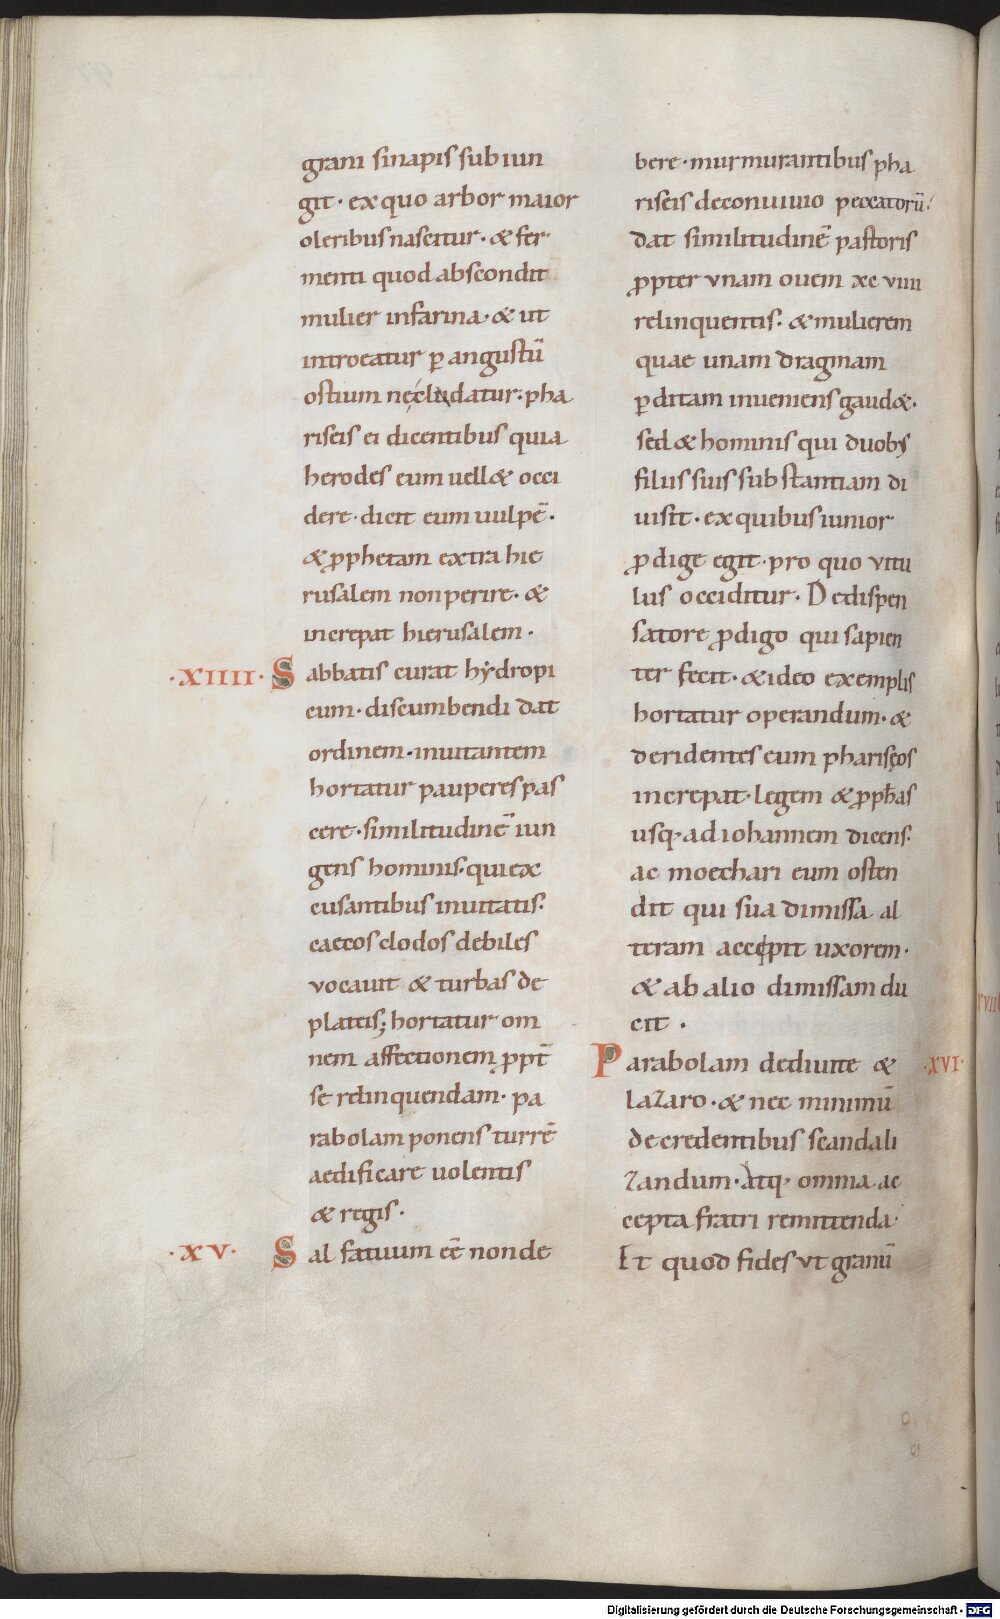 grani sinapis sub iun
git · ex quo arbor maior
oleribus nascitur · & fer
menti quod abscondit
mulier in farina · & ut
introeatur ꝑ angustū
ostium ne cludatur · pha
riseis ei dicentibus quia
herodes eum uell& occi
dere · dicit eum uulpē ·
& ꝓphetam extra hie
rusalem non perire · &
increpat hierusalem ·
·XIIII· Sabbatis curat hydropi
cum · discumbendi dat
ordinem · inuitantem
hortatur pauperes pas
cere · similitudinē iun
gens hominis · qui ex
cusantibus inuitatis ·
caecos clodos debiles
vocauit & turbas de
plateis; hortatur om
nem affectionem ꝓpt̄
se relinquendam · pa
rabolam ponens turrē
aedificare uolentis
& regis ·
·XV· Sal fatuum eē non de
bere · murmurantibus pha
riseis de conuiuio peccatorū ·
dat similitudinē pastoris
ꝓpter vnam ouem xc viiii
relinquentis · & mulierem
quae unam dragmam
ꝑditam inueniens gaud& ·
sed & hominis qui duobs
filiis suis substantiam di
uisit · ex quibus iunior
ꝓdige egit · pro quo vitu
lus occiditur · De dispen
satore ꝓdigo qui sapien
ter fecit · & ideo exemplis
hortatur operandum · &
deridentes eum pharisęos
increpat · legem & ꝓph̄as
usq· ad iohannem dicens ·
ac moechari eum osten
dit qui sua dimissa al
teram accepit uxorem ·
& ab alio dimissam du
cit ·
Parabolam de diuite & ·XVI·
lazaro · & nec minimū
de credentibus scandali
zandum · atq· omnia ac
cepta fratri remittenda ·
Et quod fides vt granū
Digitalisierung gefördert durch die Deutsche Forschungsgemeinschaft - DFG